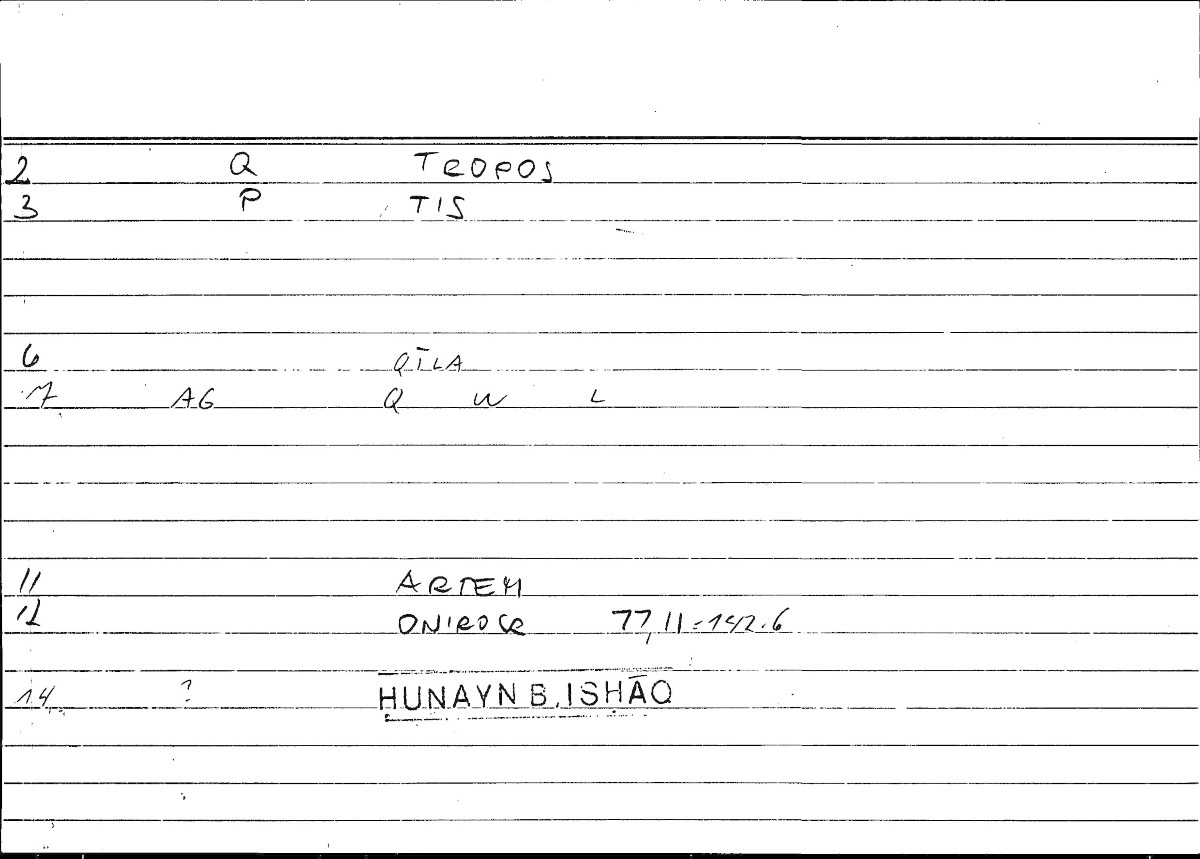 2 Q TROPOS
3 P TIS
6 QĪLA
7 AG Q W L
11 ARTEM
12 ONIROCR 77,11-142.6
14 ? ḤUNAYN B. ISḤĀQ